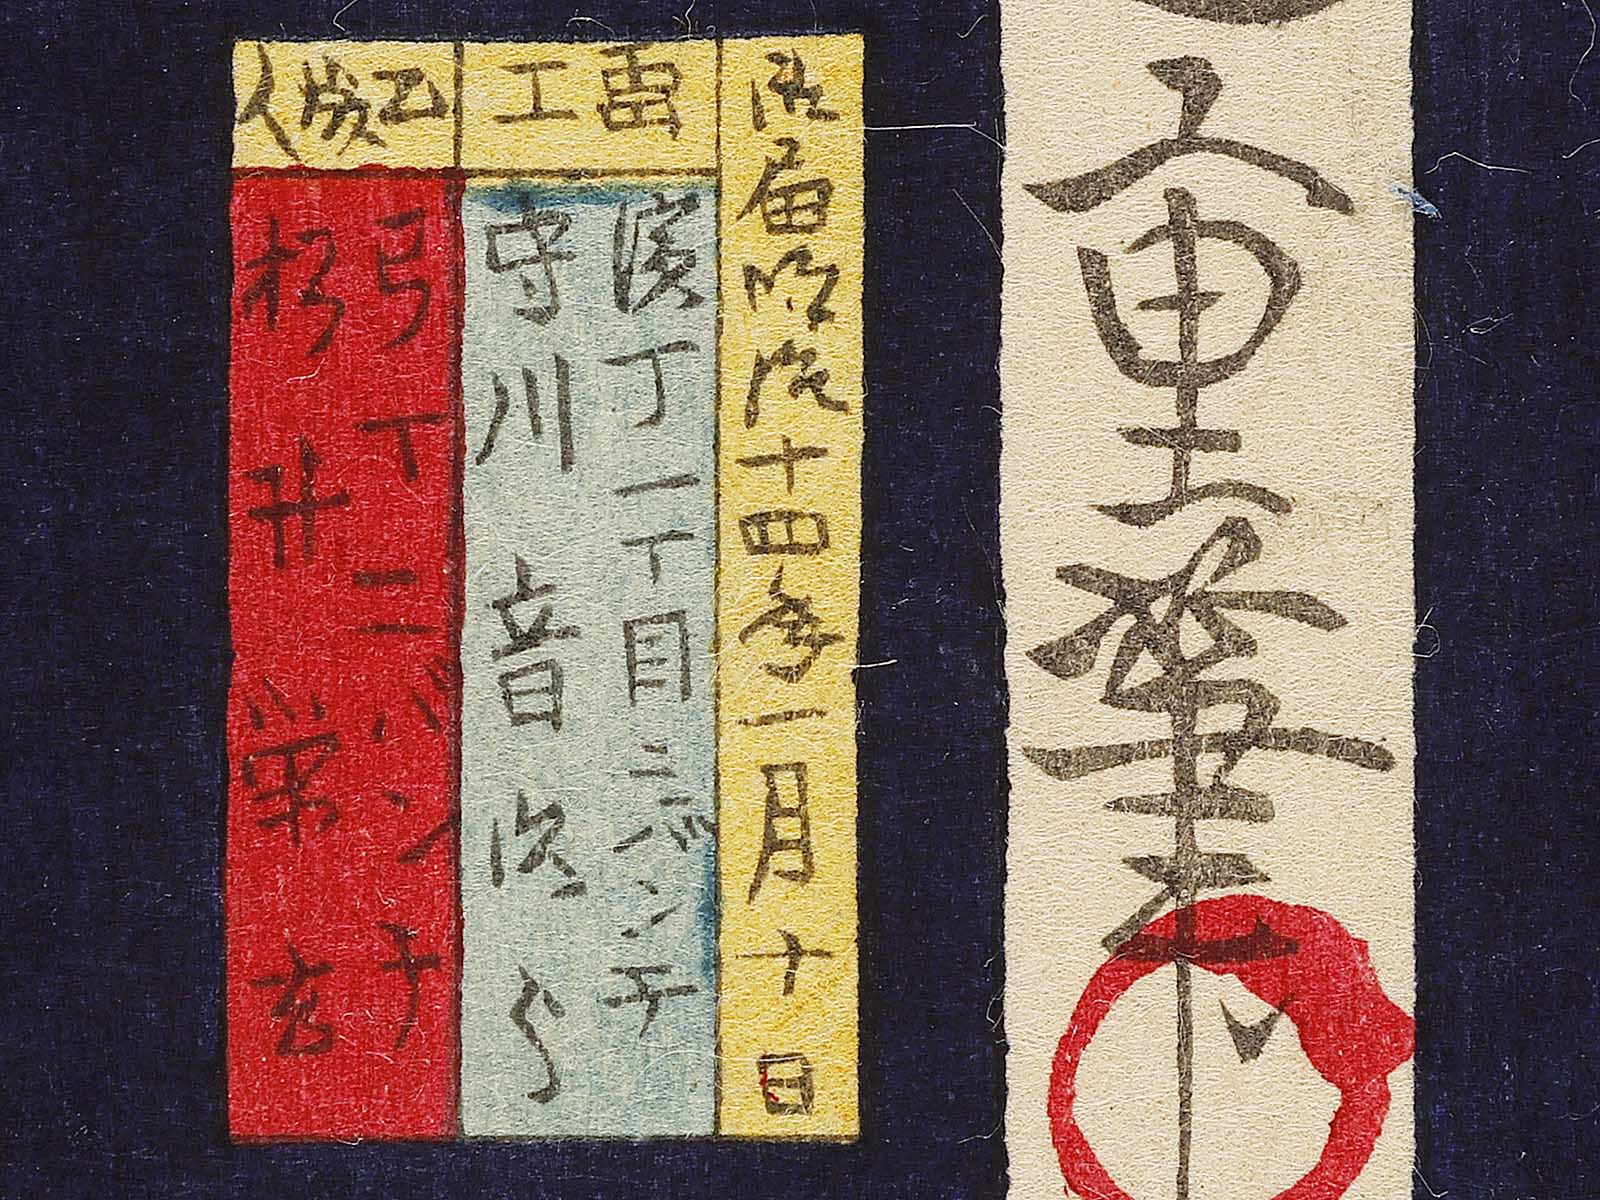 重筆
御届明治十四年一月十日
画工
濱丁一丁目三バンチ
守川音次郎
出板人
弓丁二バンチ
松井栄吉